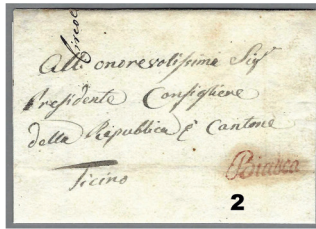 Circolo
All onorevolissimo Sigr
Presidente Consigliere
della Republica e Cantone
Ticino
Biasca
2